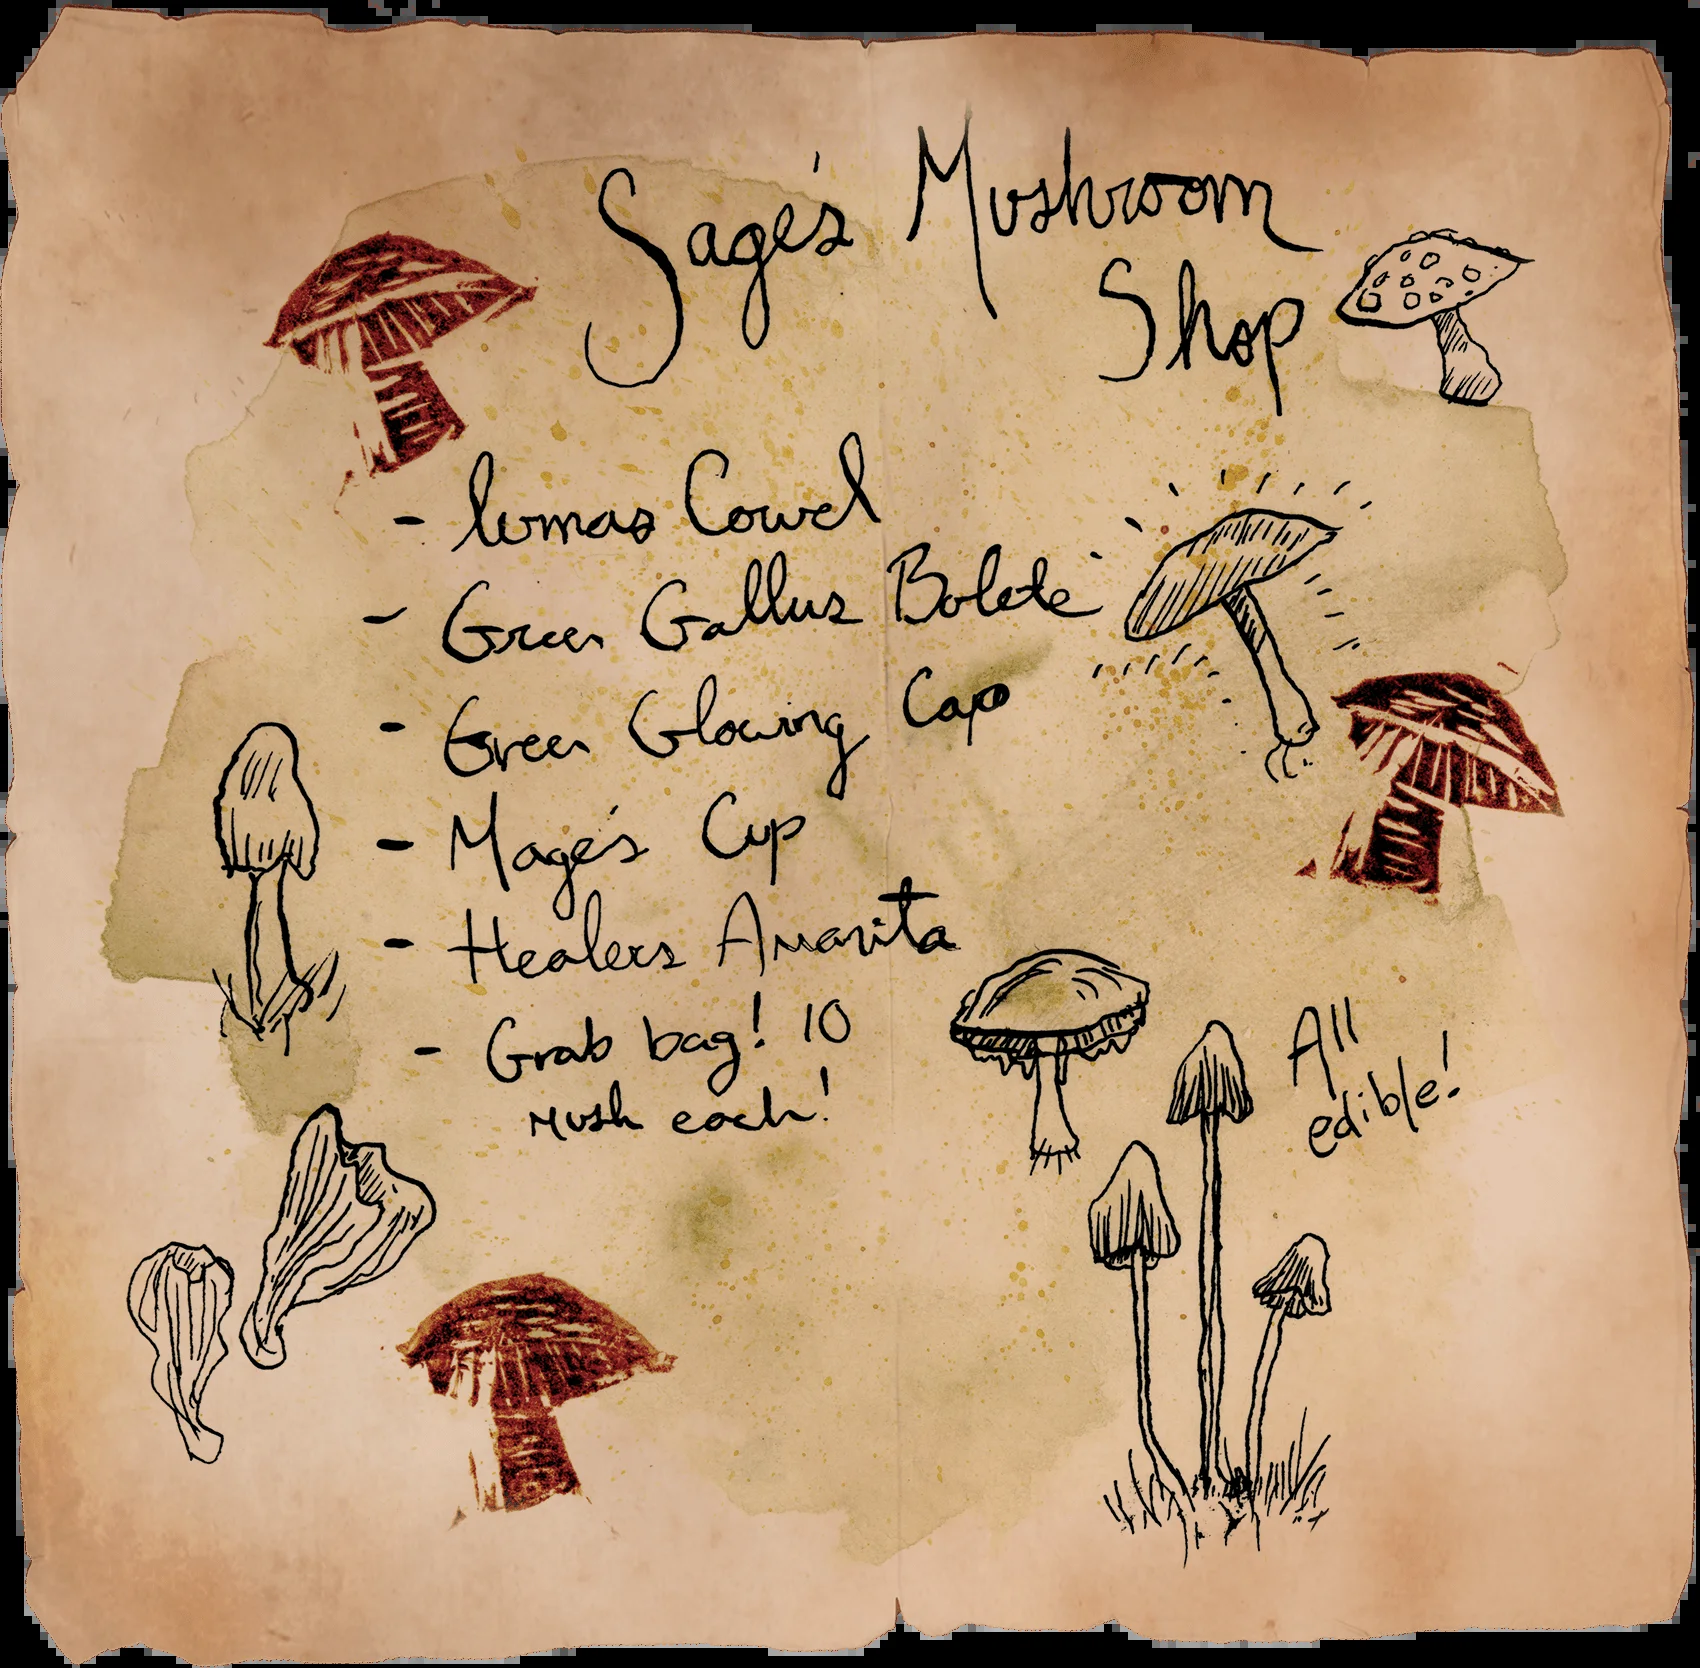 Sage's Mushroom
Shop
- lumas Cowl
- Green Gallus Bolete
- Green Glowing Cap
- Mage's Cup
- Healers Amanita
- Grab bag! 10
mush each!
All
edible!